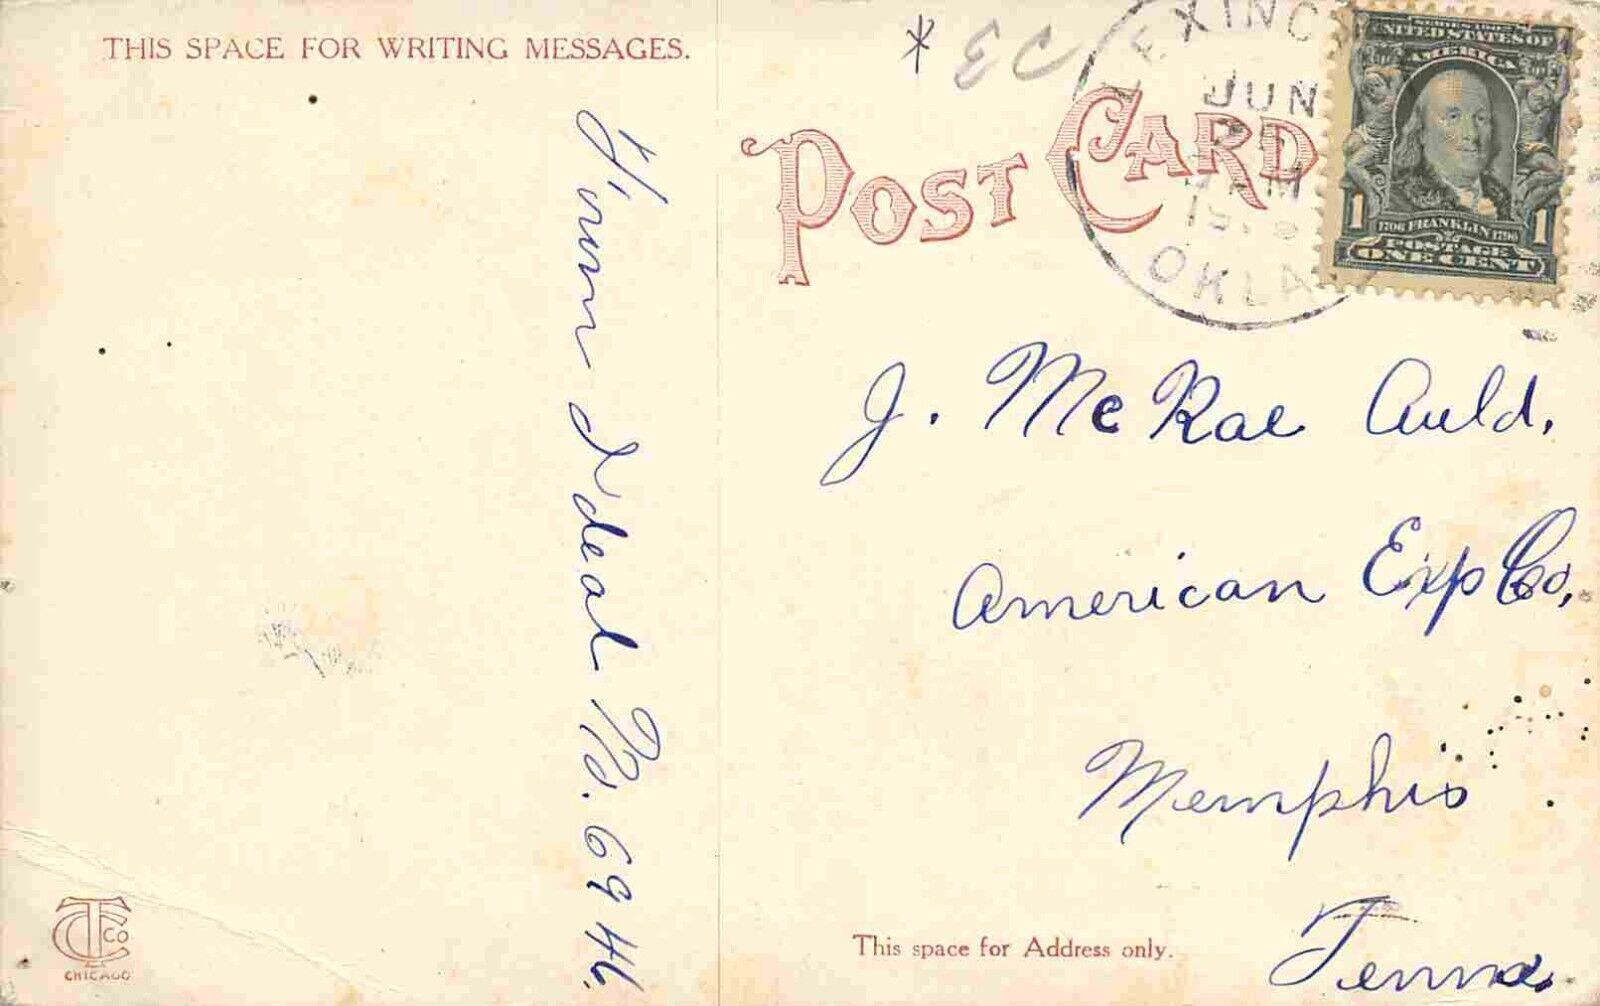 THIS SPACE FOR WRITING MESSAGES.
* EC
POST CARD
LEXING
JUN
OKLA
SERIES
UNITED STATES OF
AMERICA
1 1
1706 FRANKLIN 1790
POSTAGE
ONE CENT
Ideal No. 6946.
J. McRae Auld,
American Exp Co,
Memphis
Tenna.
This space for Address only.
CTCo
CHICAGO